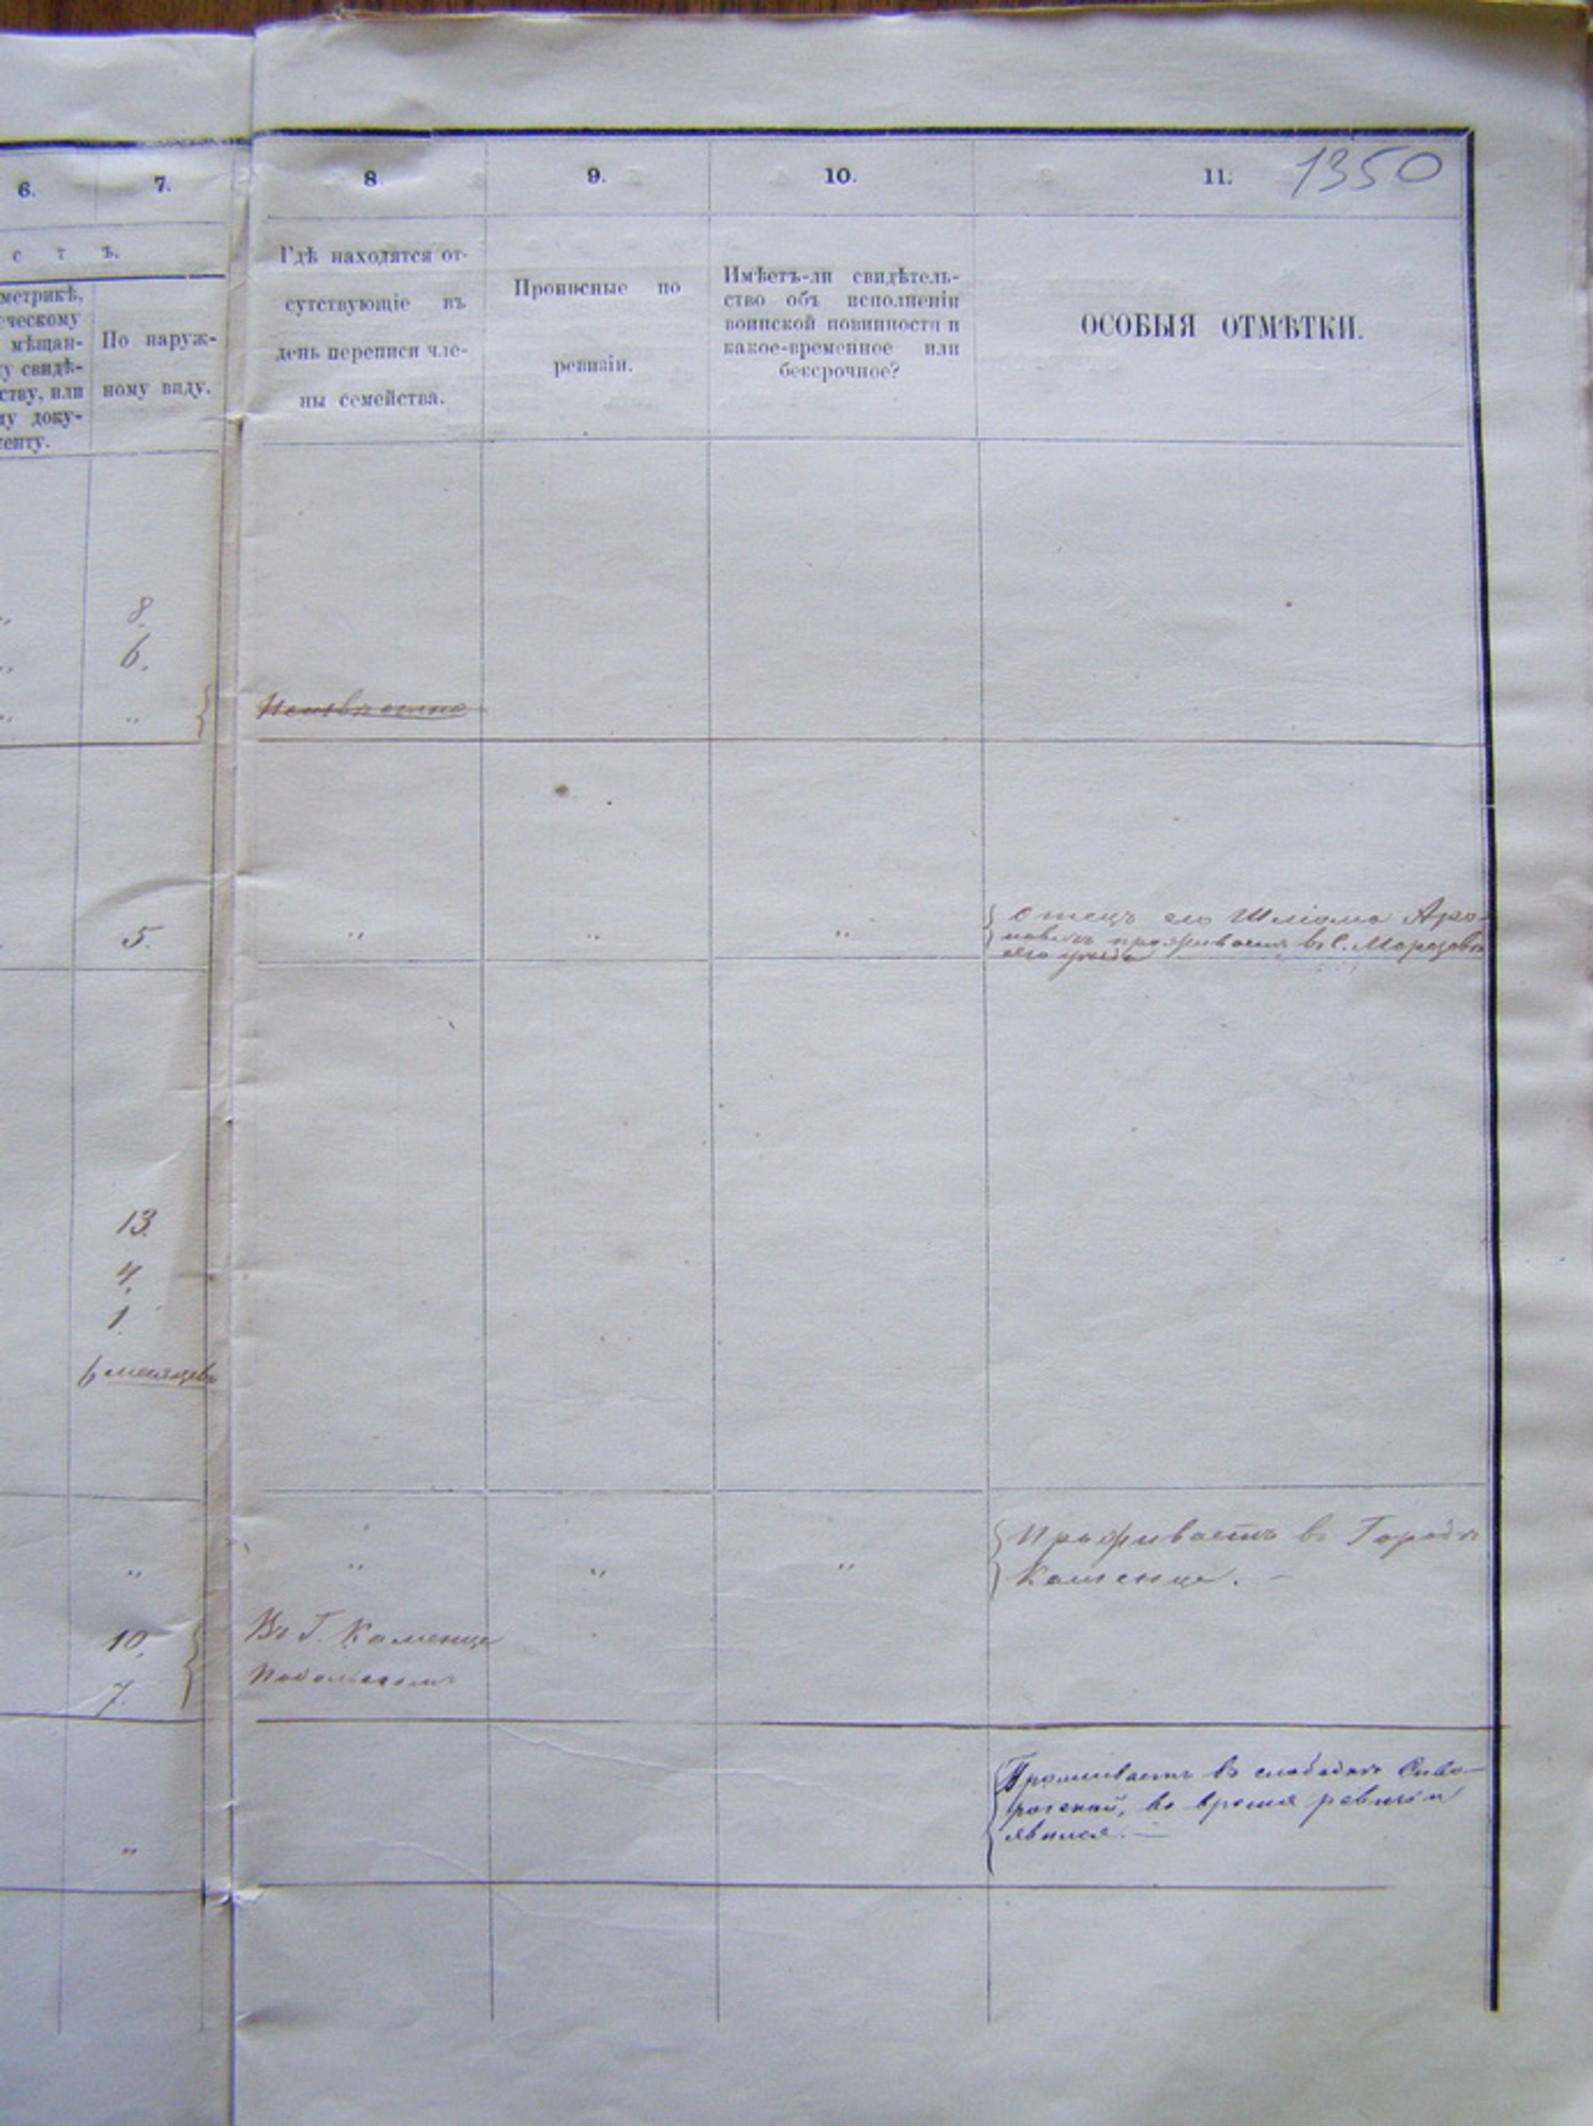 1350
6.
7.
8
9.
10.
11.
с т ъ.
метрикѣ,
ческому
мѣщан-
у свидѣ-
ству, или
му доку-
менту.
По наруж-
ному виду.
Гдѣ находятся от-
сутствующіе въ
день переписи чле-
ны семейства.
Прописные по
ревизіи.
Имѣетъ-ли свидѣтель-
ство объ исполненіи
воинской повинности и
какое-временное или
безсрочное?
ОСОБЫЯ ОТМѢТКИ.
8.
6.
„ „
Неизвѣстно
5. „ „ „
Отецъ его Шліома Аро-
новичъ проживаетъ въ С. Морозовкѣ
13.
4.
1.
6 месяцевъ
„ „ „ „
Проживаетъ въ Городѣ
Каменце. —
10.
Въ Г. Каменце
7.
Подольскомъ
Проживаетъ въ слободѣ
во время ревизіи
явился. —
„